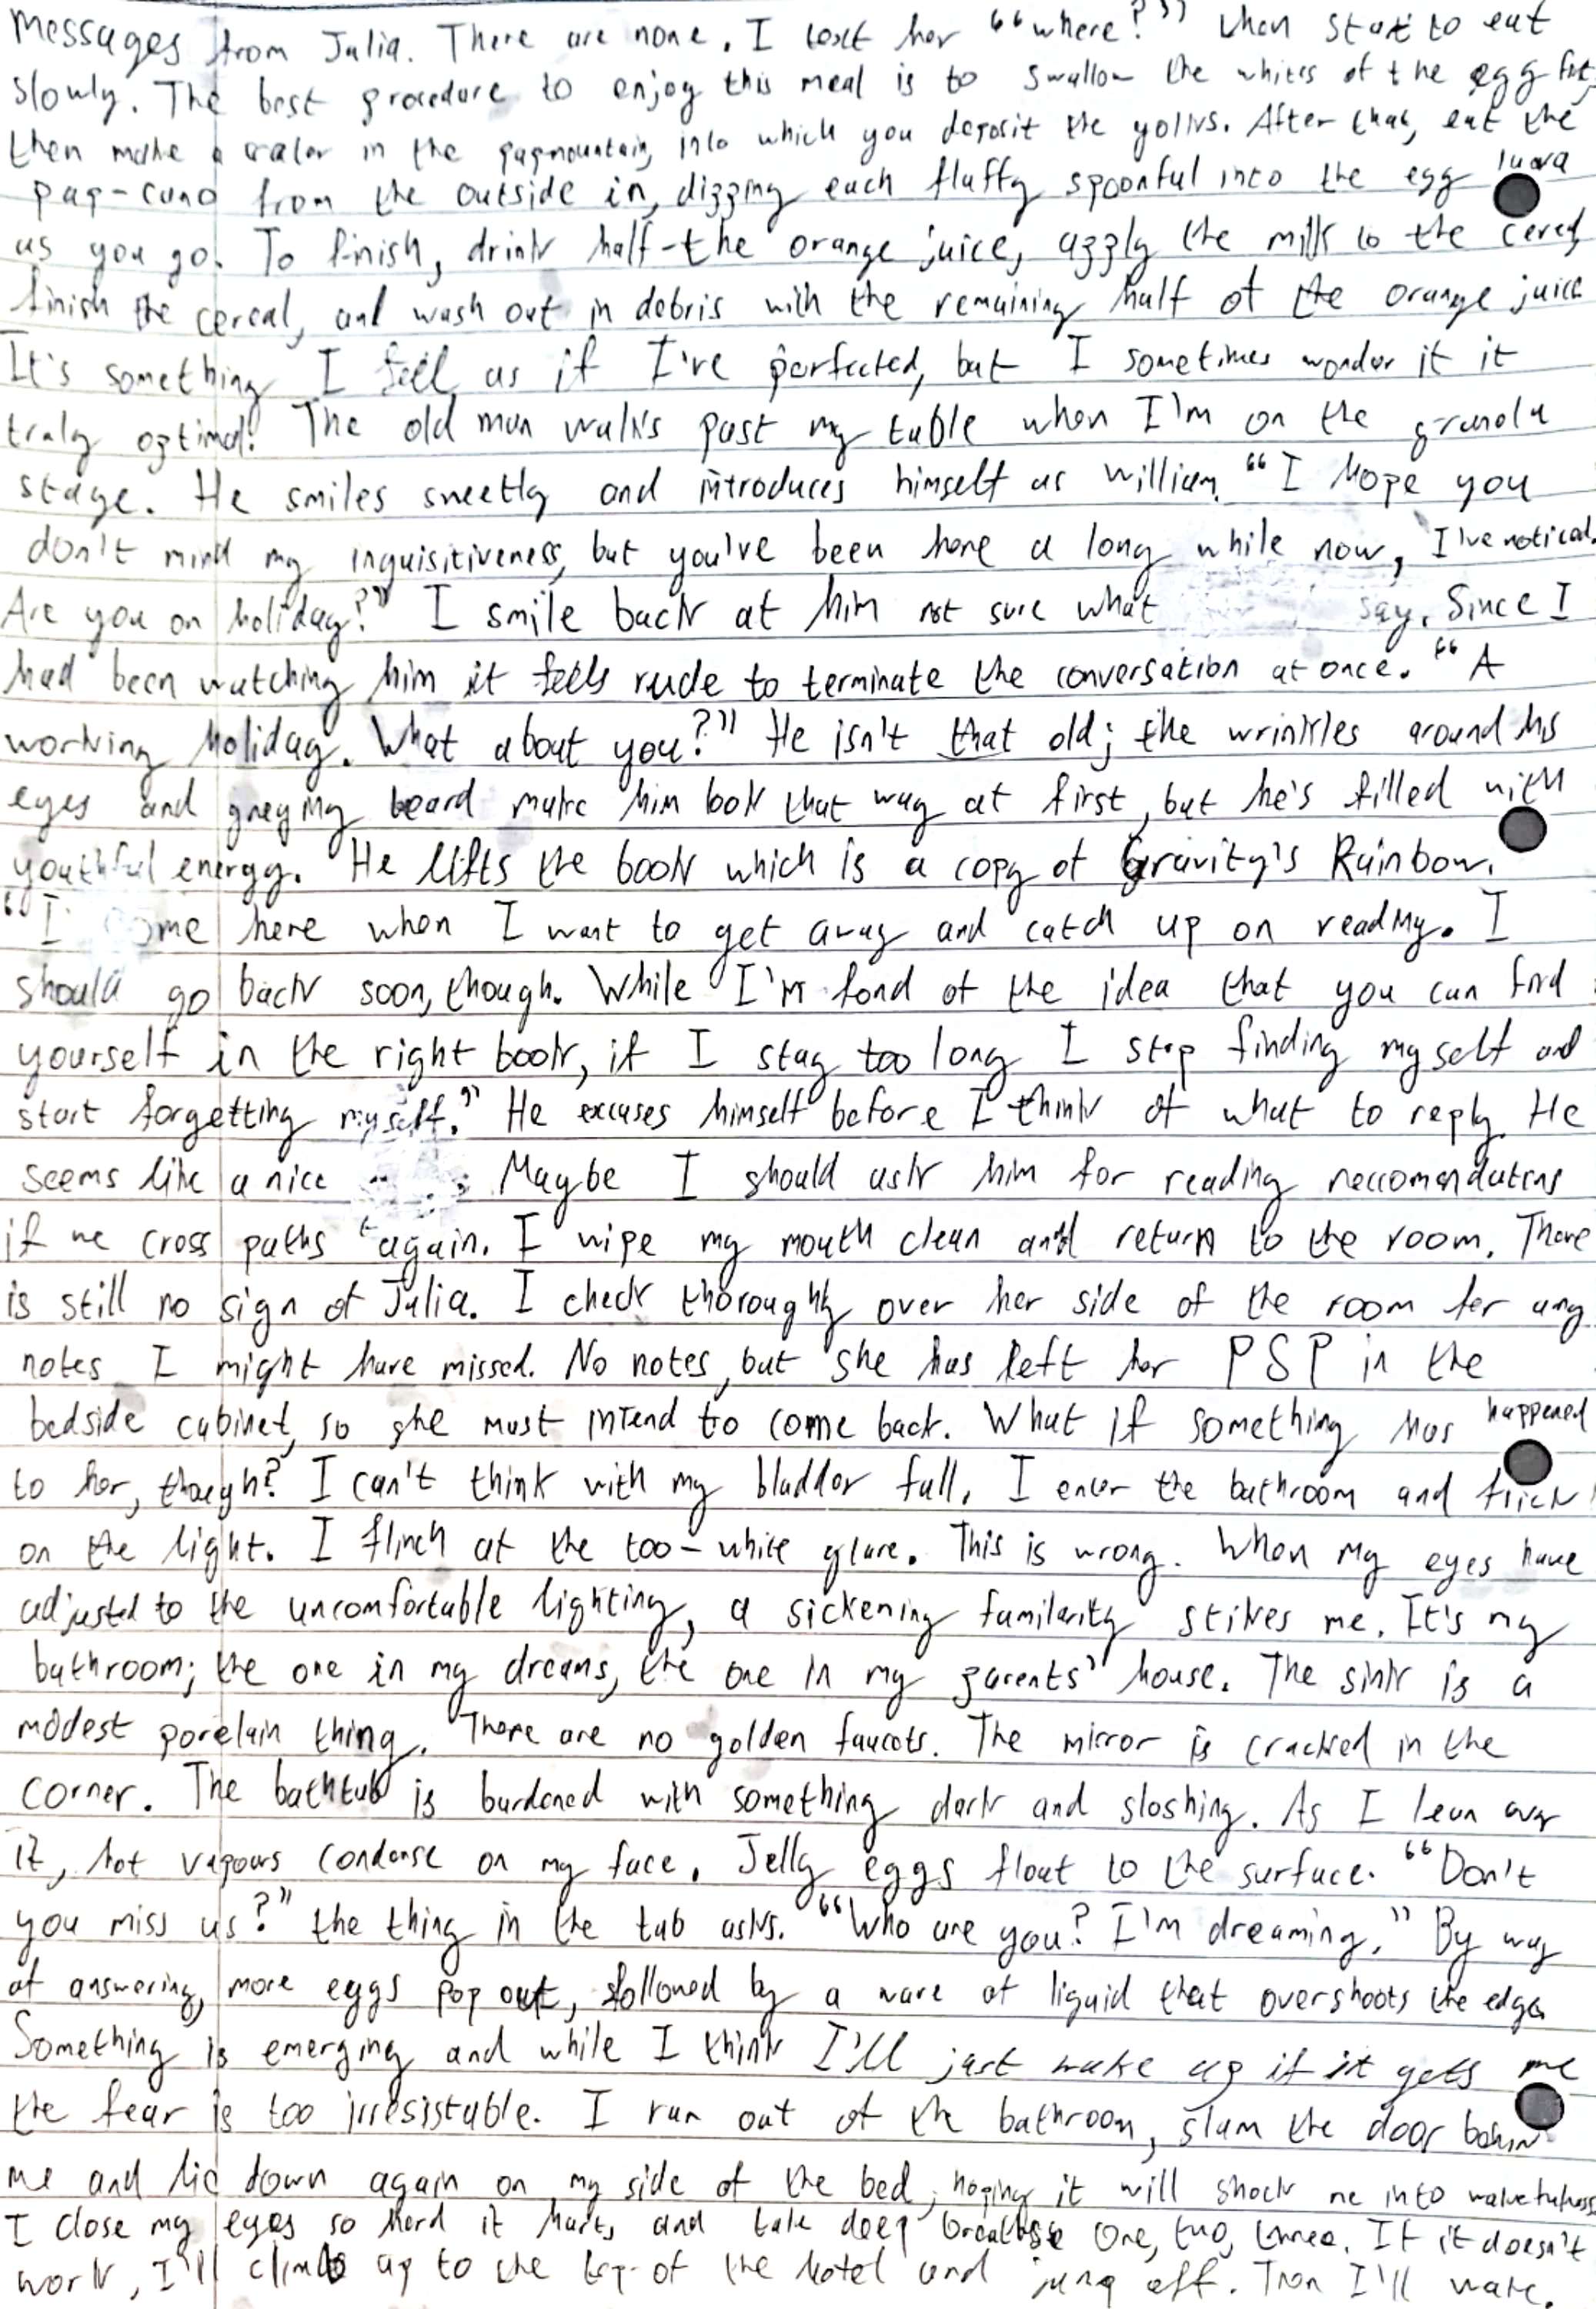 messages from Julia. There are none. I text her “where?” then start to eat
slowly. The best procedure to enjoy this meal is to swallow the whites of the egg first,
then make a crater in the papmountain, into which you deposit the yolks. After that, eat the
pap-cano from the outside in, dipping each fluffy spoonful into the egg lava
as you go. To finish, drink half-the orange juice, apply the milk to the cereal,
finish the cereal, and wash out in debris with the remaining half of the orange juice
It's something I feel as if I've perfected, but I sometimes wonder if it
truly optimal. The old man walks past my table when I'm on the granola
stage. He smiles sweetly and introduces himself as William. “I hope you
don't mind my inquisitiveness, but you've been here a long while now, I've noticed.
Are you on holiday?” I smile back at him not sure what say. Since I
had been watching him it feels rude to terminate the conversation at once. “A
working holiday. What about you?” He isn't that old; the wrinkles around his
eyes and greying beard make him look that way at first, but he's filled with
youthful energy. He lifts the book which is a copy of Gravity's Rainbow.
“I come here when I want to get away and catch up on reading. I
should go back soon, though. While I'm fond of the idea that you can find
yourself in the right book, if I stay too long I stop finding myself and
start forgetting myself.” He excuses himself before I think of what to reply. He
seems like a nice Maybe I should ask him for reading reccomendations
if we cross paths again. I wipe my mouth clean and return to the room. There
is still no sign of Julia. I check thoroughly over her side of the room for any
notes I might have missed. No notes, but she has left her PSP in the
bedside cabinet, so she must intend to come back. What if something has happened
to her, though? I can't think with my bladder full. I enter the bathroom and flick
on the light. I flinch at the too-white glare. This is wrong. When my eyes have
adjusted to the uncomfortable lighting, a sickening familarity stikes me. It's my
bathroom; the one in my dreams, the one in my parents' house. The sink is a
modest porelain thing. There are no golden faucets. The mirror is cracked in the
corner. The bathtub is burdened with something dark and sloshing. As I lean over
it, hot vapours condense on my face. Jelly eggs float to the surface. “Don't
you miss us?” the thing in the tub asks. “Who are you? I'm dreaming.” By way
of answering, more eggs pop out, followed by a wave of liquid that overshoots the edge
Something is emerging and while I think I'll just wake up if it gets me
the fear is too irresistable. I run out of the bathroom, slam the door behind
me and lie down again on my side of the bed, hoping it will shock me into wakefulness
I close my eyes so hard it hurts and take deep breaths one, two, three. If it doesn't
work, I'll climb up to the top of the hotel and jump off. Then I'll wake.